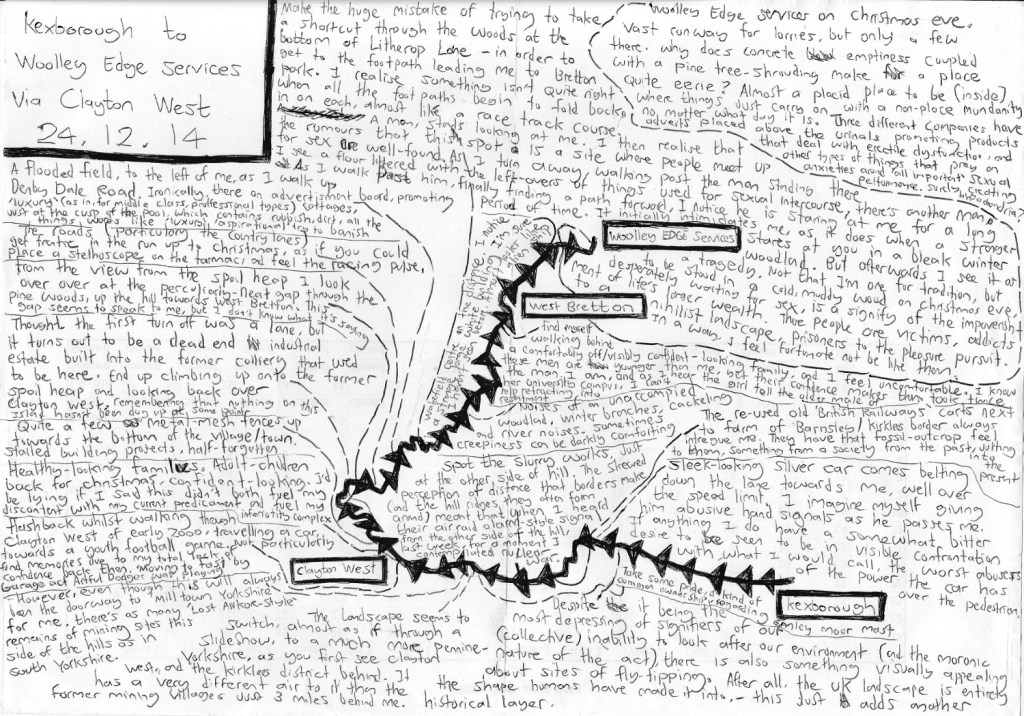 Kexborough to
Woolley Edge Services
Via Clayton West
24.12.14
Make the huge mistake of trying to take
a shortcut through the woods at the
bottom of Litherop Lane - in order to
get to the footpath leading me to Bretton
park. I realise something isn't quite right
when all the foot paths begin to fold back
in on each, almost like a race track course.
A man, stood looking at me. I then realise that
the rumours that this spot is a site where people meet up
for sex is well-found. As I turn away, walking post the man stnding there
I see a floor littered with the left-overs of things used for sexual intercourse, there's another man.
As I walk past him, finally finding a path forward, I notice he is staring at me for a long
period of time. It initially intimidates me, as it does when a stranger
stares at you in a bleak winter
woodland. But afterwards I see it all
to be a tragedy. Not that I'm one for tradition, but
to be stood in a cold, muddy wood on christmas eve,
desperately waiting for sex, is a signify of the impoverish
ment of life's larger wealth. These people are victims, addicts
to a nihilist landscape, prisoners to the pleasure pursuit.
in a way, I feel fortunate not be like them.
Woolley Edge services on Christmas eve.
Vast runway for lorries, but only a few
there. Why does concrete emptiness coupled
with a pine tree-shrouding make a place
quite eerie? Almost a placid place to be (inside)
where things just carry on with a non-place mundanity
no matter what day it is. Three different companies have
adverts placed above the urinals promoting products
that deal with erectile dysfunction, and
other types of things that prey on
anxieties around all important sexual
performance. Surely creating
hypochondria?
A flooded field, to the left of me, as I walk up
Denby Dale Road. Ironically, there an advertisment board, promoting
'luxury' (as in, for middle class, professional types) cottages,
just at the cusp of the pool, which contains rubbish, dirt, all the
things words like 'luxury' 'aspirational' try to banish
The roads (particulory the country lanes)
get frantic in the run up to Christmas, as if you could
place a stethoscope on the tarmac and feel the racing pulse.
From the view from the spoil heap I look
over over at the perculiarly-neat gap through the
pine woods, up the hill towards West Bretton. This
gap seems to speak to me, but I don't know what it's saying
Thought the first turn off was a lane, but
it turns out to be a dead end industrial
estate built into the former colliery that used
to be here. End up climbing up onto the former
spoil heap and looking back over
Clayton West, remembering that nothing on this
island hasn't been dug up at some point
Quite a few metal-mesh fences up
towards the bottom of the village/town.
stalled building projects, half-forgotten
Healthy-looking families. Adult-children
back for christmas, confident-looking. I'd
be lying if I said this didn't both fuel my
discontent with my current predicament and fuel my
inferiority complex
flashback whilst walking though
Clayton West of early 2000, travelling a car
towards a youth football game. Not particularly
find memories due to my total lack of
confidence back then. 'Moving Too fast' by
Garage act Artful Dodger was playing
However, even though this will always
been the doorway to Mill town Yorkshire
for me, there's as many 'Lost Ankor-style'
remains of mining sites this
side of the hills as in
south Yorkshire.
The landscape seems to
switch, almost as if through a
slideshow, to a much more pennine-
Yorkshire, as you first see clayton
west, and the kirklees district behind. It
has a very different air to it than the
former mining villages just 3 miles behind me.
Despite it being the
most depressing of signifiers of our
(collective) inability to look after our environment (and the moronic
nature of the act), there is also something visually appealing
about sites of fly-tipping. After all, the uk landscape is entirety
the shape humans have made it into - this just adds another
historical layer.
find myself
walking behind
a comfortably off/visibly confident-looking family, and I feel uncomfortable. I know
the men are younger than me, yet their confidence makes them look twice
the man I am, and as I hear the girl tell the older male of
her university campus, I can't
help retracting into
resentment
Noises of an unaccupied
woodland, winter branches, cackeling
and river noises. Sometimes
creepiness can be darkly comforting
spot the slurry works, just
at the other side of the hill. The skewed
perception of distance that borders make
(and the hill ridges they often form
around) meant that when I heard
their air raid alarm-style signal
from the other side of the hill
last week, for a moment I
contemplated nuclear
war.
The re-used old 'British Railways' carts next
to farm of Barnsley/kirklees border always
intrigue me. They have that fossil-outcrop feel
to them, something from a society from the past, jutting
into
the
present
Sleek-looking silver car comes belting
down the lane towards me, well over
the speed limit. I imagine myself giving
him abusive hand signals as he passes me.
If anything I do have a somewhat bitter
desire to be seen to be in visible confrontation
with what I would call, the worst abusers
of the power the car has
over the pedestrian.
Take some pride, a kind of
common ownership, regarding
emley moor mast
Woolley EDGE SERVICES
West Bretton
Clayton West
Kexborough